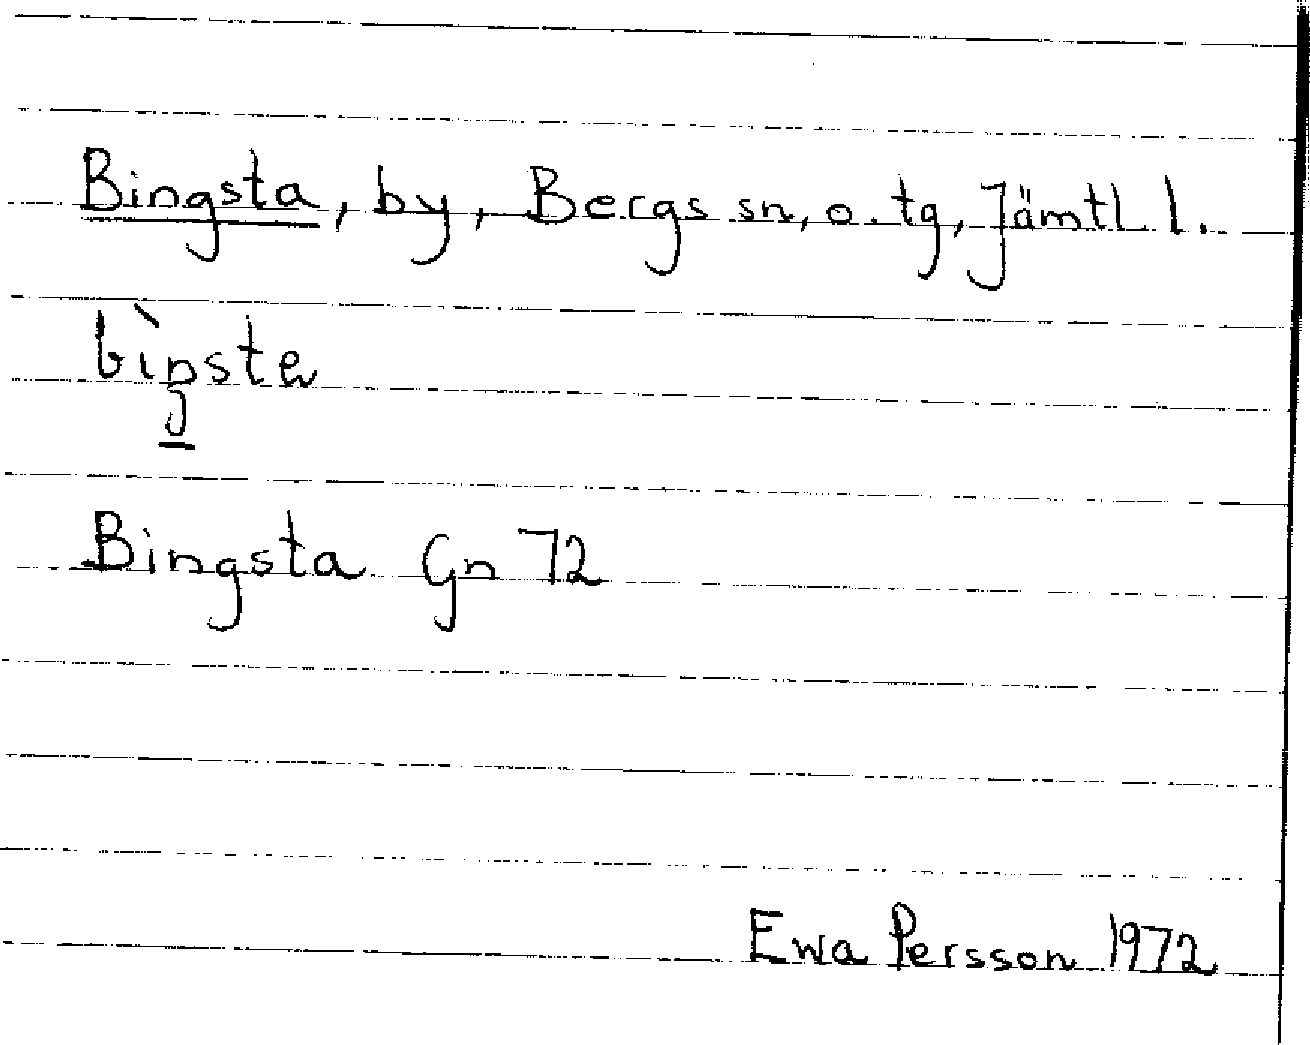 Bingsta, by, Bergs sn, o. tg, Jämtl l.
Bingsta Gn 72
Ewa Persson 1972